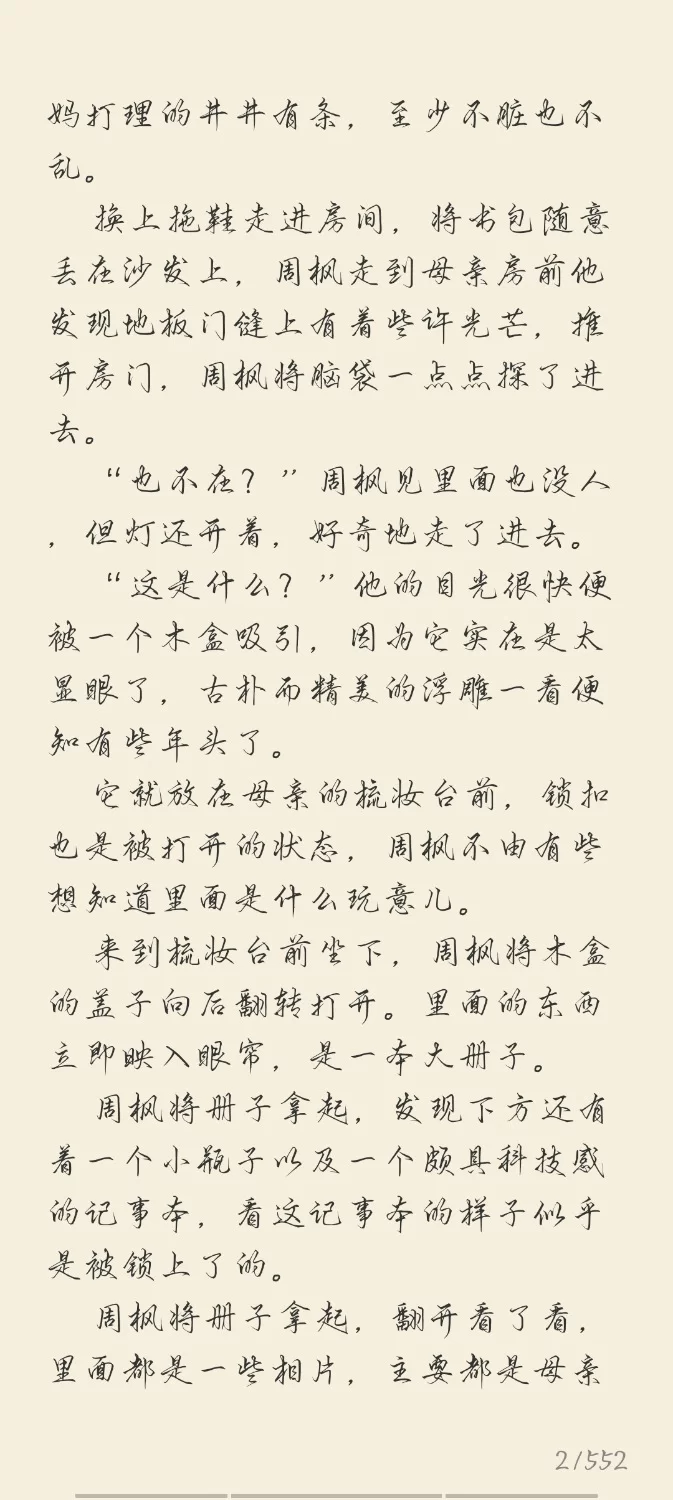 妈打理的井井有条，至少不脏也不
乱。
换上拖鞋走进房间，将书包随意
丢在沙发上，周枫走到母亲房前他
发现地板门缝上有着些许光芒，推
开房门，周枫将脑袋一点点探了进
去。
“也不在？”周枫见里面也没人
，但灯还开着，好奇地走了进去。
“这是什么？”他的目光很快便
被一个木盒吸引，因为它实在是太
显眼了，古朴而精美的浮雕一看便
知有些年头了。
它就放在母亲的梳妆台前，锁扣
也是被打开的状态，周枫不由有些
想知道里面是什么玩意儿。
来到梳妆台前坐下，周枫将木盒
的盖子向后翻转打开。里面的东西
立即映入眼帘，是一本大册子。
周枫将册子拿起，发现下方还有
着一个小瓶子以及一个颇具科技感
的记事本，看这记事本的样子似乎
是被锁上了的。
周枫将册子拿起，翻开看了看，
里面都是一些相片，主要都是母亲
2/552